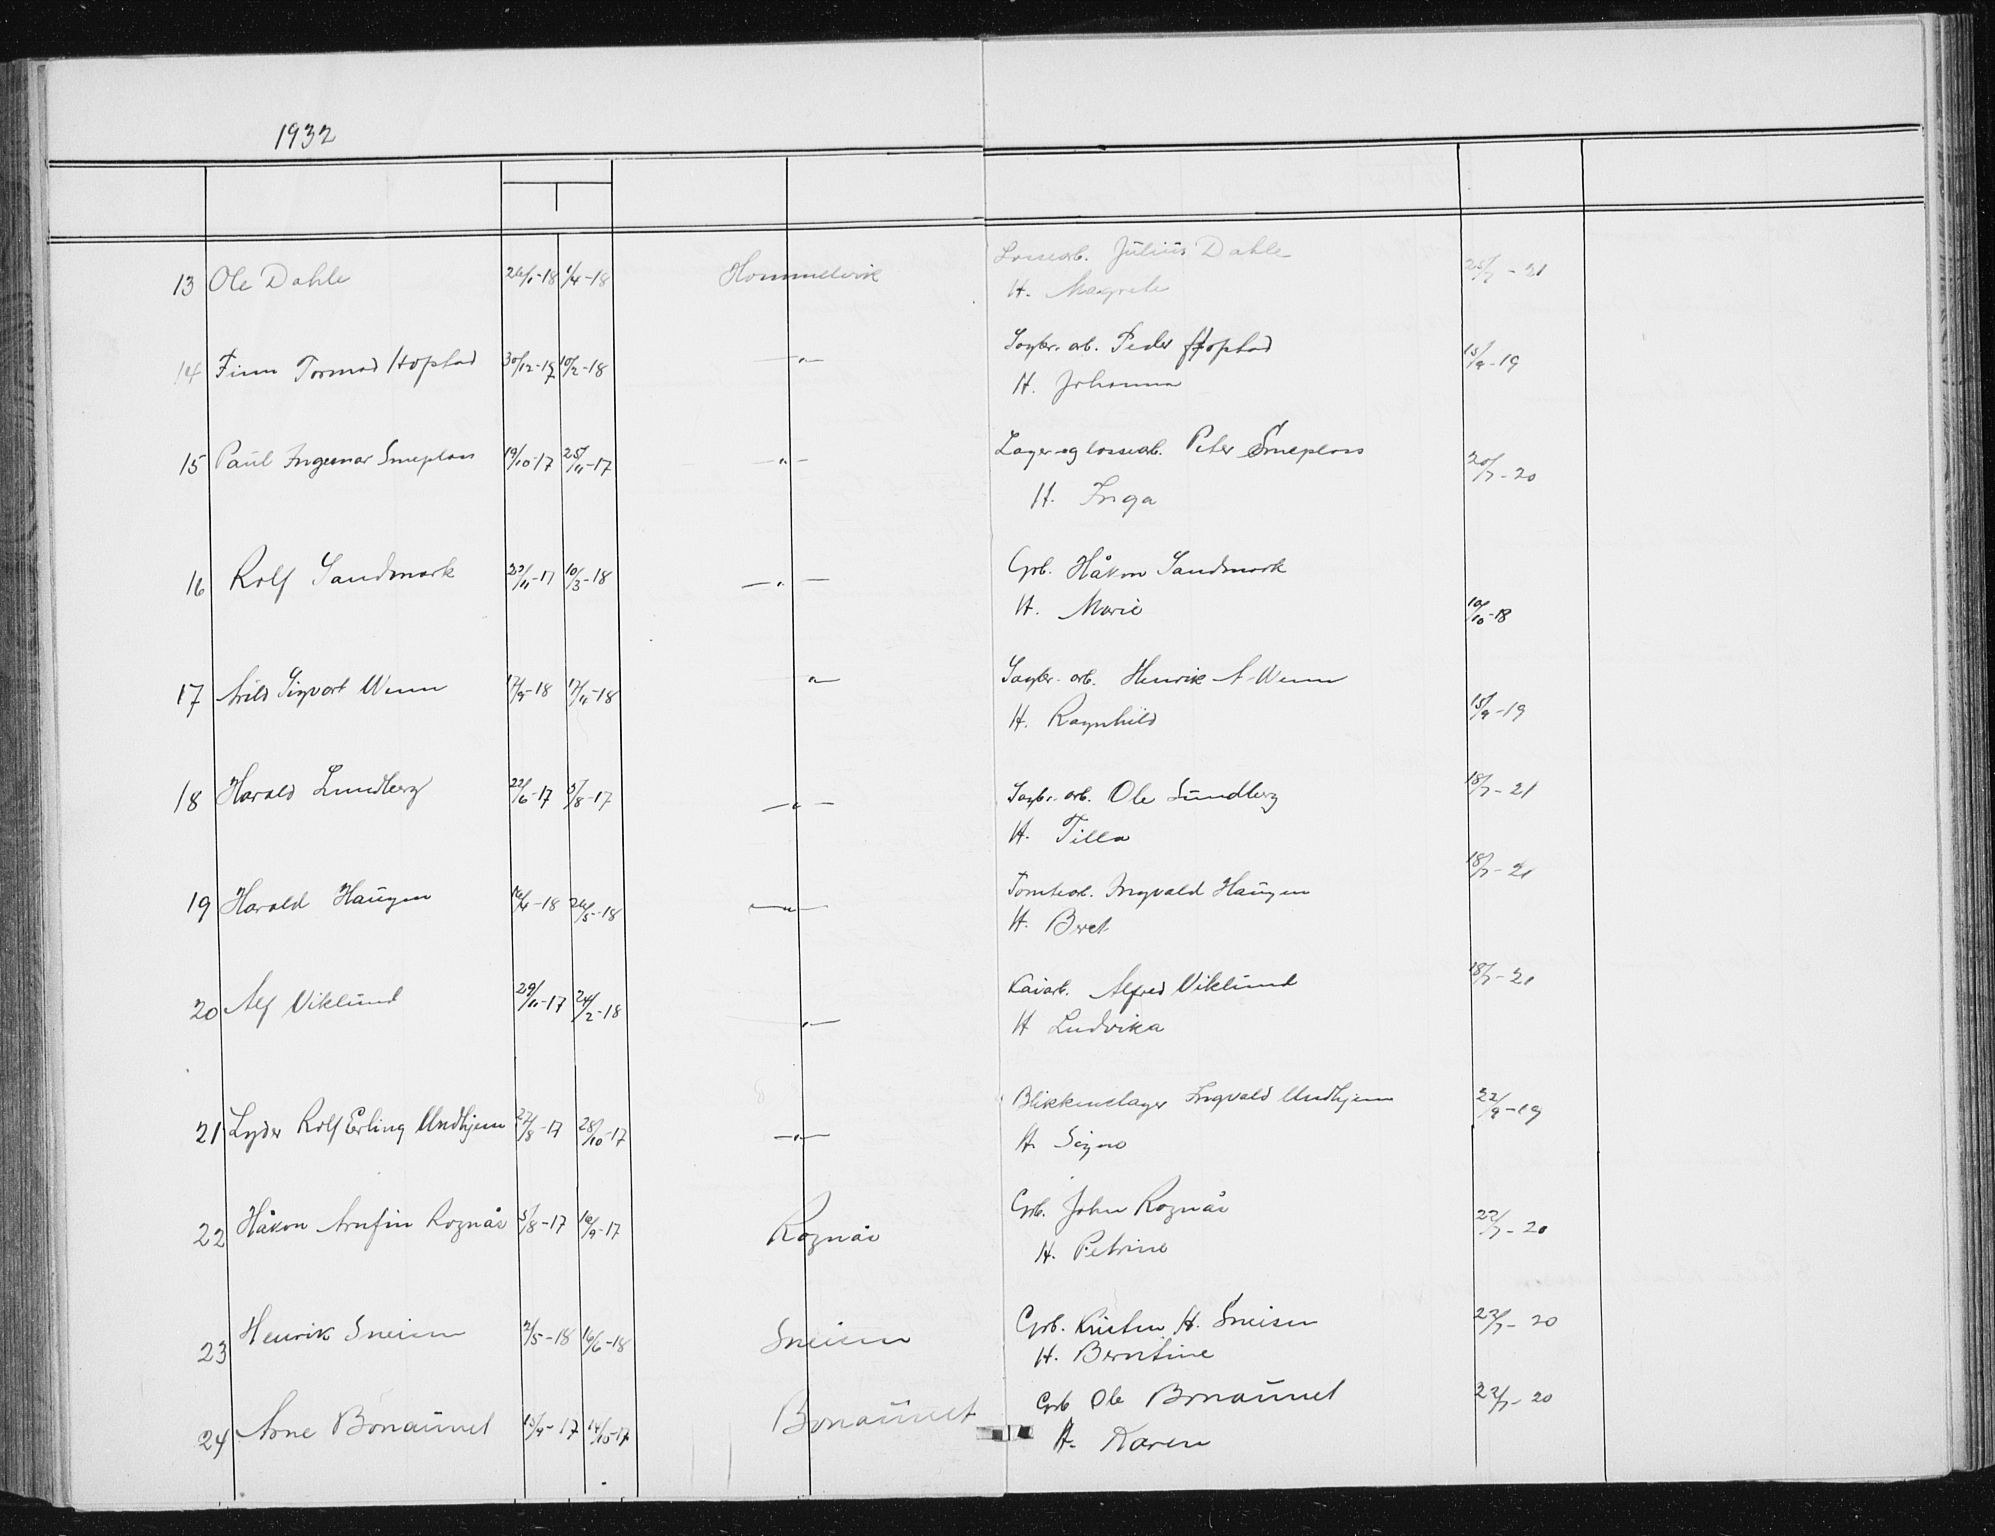 1932
13 Ole Dahle 26/1-18 1/4-18 Hommelvik Lossearb. Julius Dahle 25/7-21
H. Magrete
14 Finn Tormod Hopstad 30/12-17 10/2-18 —"— Sagbr. arb. Peder Hopstad 15/9-19
H. Johanna
15 Paul Ingemar Sneploss 19/10-17 25/11-17 —"— Lager- og lossearb. Peter Sneploss 20/7-20
H. Inga
16 Rolf Sandmark 23/11-17 10/3-18 —"— Grb. Håkon Sandmark
H. Marie 10/10-18
17 Arild Sigvart Wenn 17/9-18 17/11-18 —"— Sagbr. arb. Henrik A. Wenn
H. Ragnhild 15/9-19
18 Harald Lundberg 22/6-17 5/8-17 —"— Sagbr. arb. Ole Lundberg 18/7-21
H. Tilla
19 Harald Haugen 16/4-18 26/5-18 —"— Tomtearb. Ingvald Haugen 18/7-21
H. Beret
20 Alf Viklund 29/11-17 24/2-18 —"— Kaiarb. Alfred Viklund 18/7-21
H Ludvika
21 Lyder Rolf Erling Undhjem 27/8-17 28/10-17 —"— Blikkenslager Ingvald Undhjem 22/9-19
H. Signe
22 Håkon Arnfin Rognås 5/8-17 16/9-17 Rognås Grb. John Rognås 22/7-20
H. Petrine
23 Henrik Sneisen 2/5-18 16/6-18 Sneisen Grb. Kristen H. Sneisen 22/7-20
H. Berntine
24 Arne Bonaunet 15/9-17 14/10-17 Bonaunet Grb Ole Bonaunet 22/7-20
H. Karen